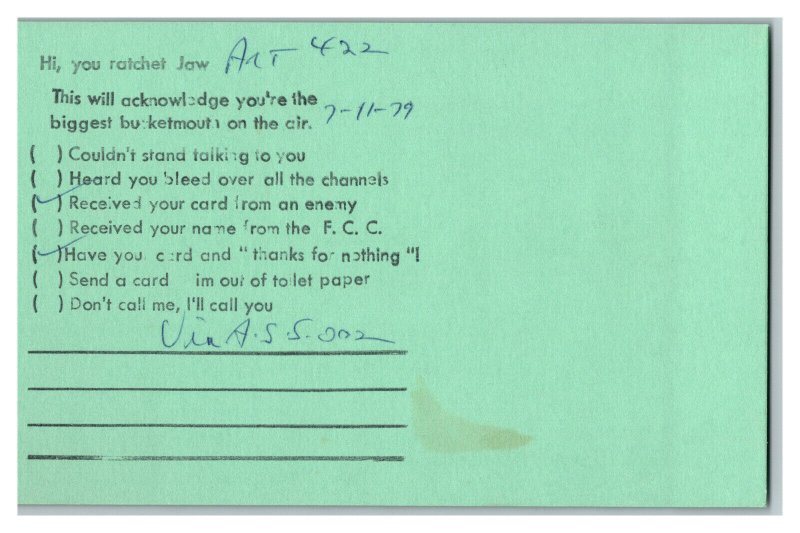 Hi, you ratchet Jaw Art 422
This will acknowledge you're the
biggest bucketmouth on the air. 7-11-79
( ) Couldn't stand talking to you
( ) Heard you bleed over all the channels
(✓) Received your card from an enemy
( ) Received your name from the F. C. C.
(✓) Have your card and "thanks for nothing"!
( ) Send a card im out of toilet paper
( ) Don't call me, I'll call you
Via A.S.S.002